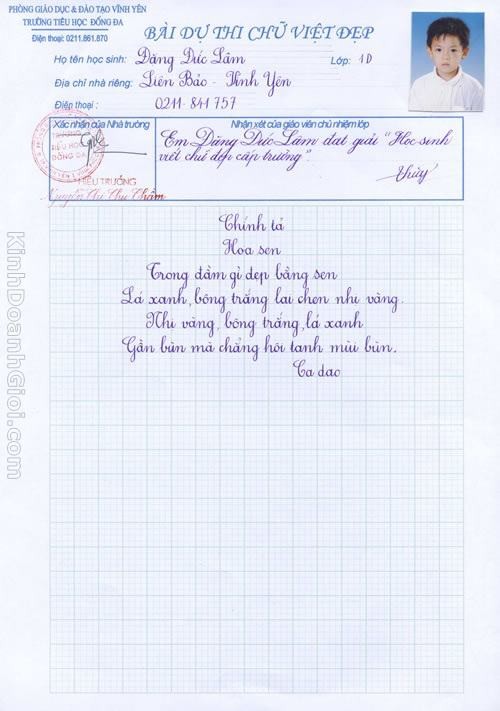 PHÒNG GIÁO DỤC & ĐÀO TẠO VĨNH YÊN
TRƯỜNG TIỂU HỌC ĐỐNG ĐA
Điện thoại: 0211.861.870
BÀI DỰ THI CHỮ VIỆT ĐẸP
Họ tên học sinh: Đặng Đức Lâm Lớp: 1D
Địa chỉ nhà riêng: Liên Bảo - Vĩnh Yên
Điện thoại: 0211- 841 757
Xác nhận của Nhà trường
Nhận xét của giáo viên chủ nhiệm lớp
Em Đặng Đức Lâm đạt giải "Học sinh
viết chữ đẹp cấp trường".
Thủy
TRƯỜNG
TIỂU HỌC
ĐỐNG ĐA
HIỆU TRƯỞNG
Nguyễn Thị Thu Thắm
Chính tả
Hoa sen
Trong đầm gì đẹp bằng sen
Lá xanh, bông trắng lại chen nhị vàng.
Nhị vàng, bông trắng, lá xanh
Gần bùn mà chẳng hôi tanh mùi bùn.
Ca dao
KinhDoanhGioi.com